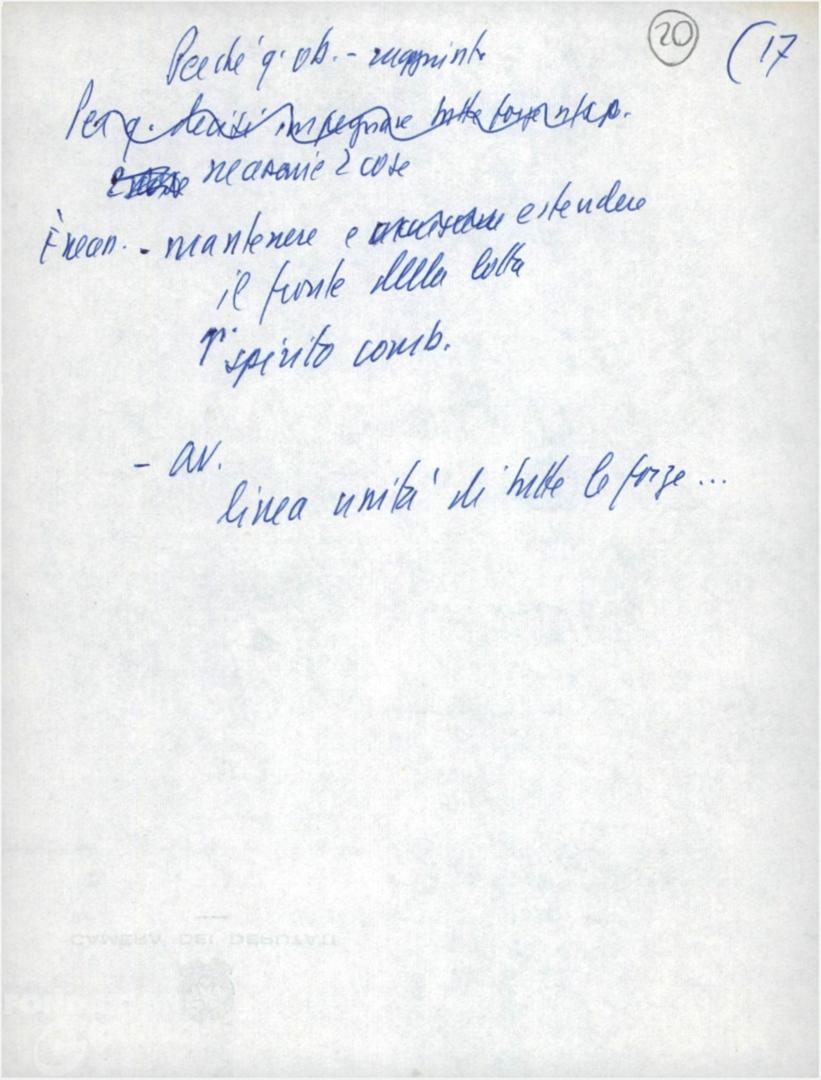 20 (17
Perché q. ob. - raggiunto
Per q. decisi impegnare tutte forze
necessarie 2 cose
È necess. - mantenere e estendere
il fronte della lotta
spirito comb.
- av.
linea unità di tutte le forze...
CAMERA DEI DEPUTATI